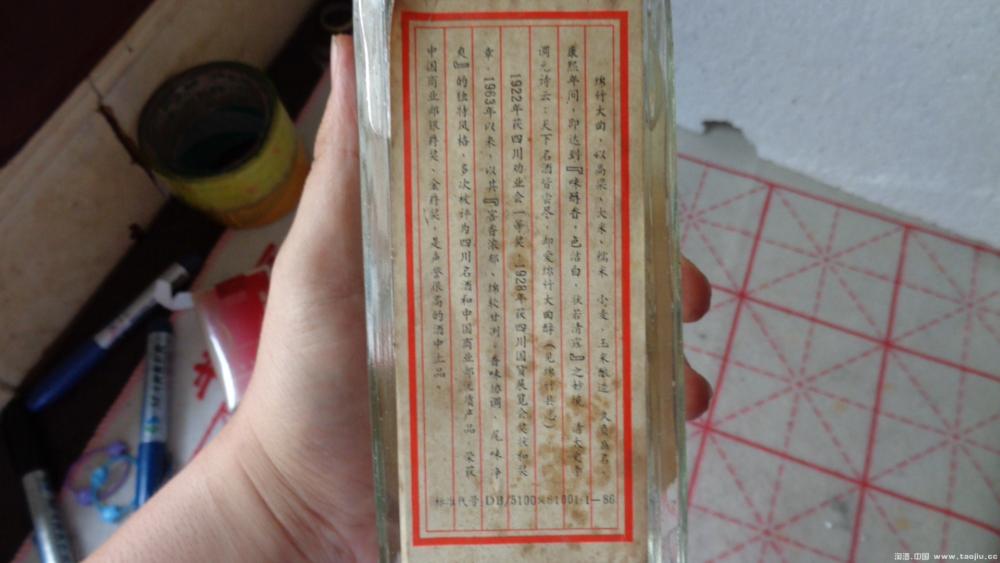 绵竹大曲，以高粱、大米、糯米、小麦、玉米酿造，久负盛名，
康熙年间，即达到『味醇香，色洁白，状若清露』之妙境，清太史李
调元诗云：天下名酒皆尝尽，却爱绵竹大曲醇（见绵竹县志）
1922年获四川劝业会一等奖，1928年获四川国货展览会奖状和奖
章，1963年以来，以其『窖香浓郁、绵软甘冽、香味协调、尾味净
爽』的独特风格，多次被评为四川名酒和中国商业部优质产品，荣获
中国商业部银爵奖、金爵奖，是声誉很高的酒中上品。
标准代号：DB/5100
81001·1—86
淘酒.中国 www.taojiu.cc